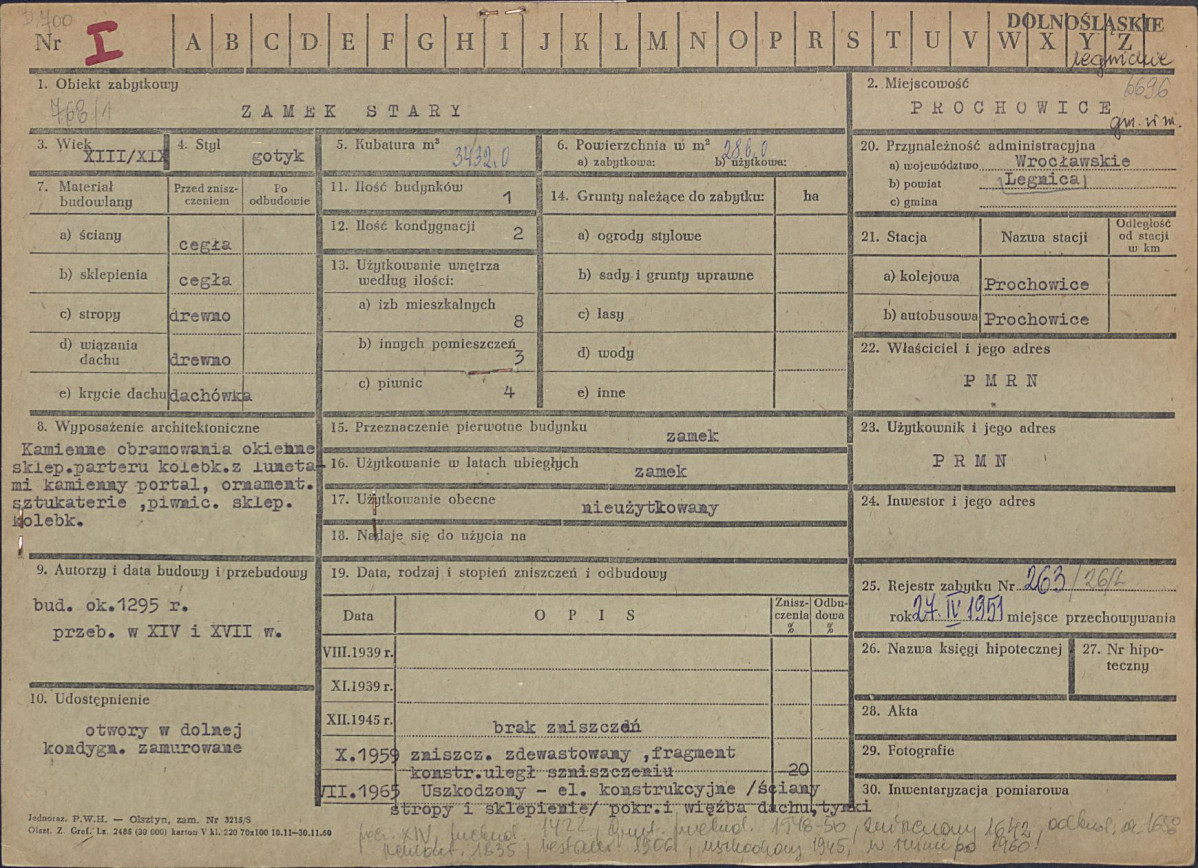 D.700
Nr I A B C D E F G H I J K L M N O P R S T U V W X Y Z
DOLNOŚLĄSKIE
legnickie
1. Obiekt zabytkowy
768/1
ZAMEK STARY
2. Miejscowość
6696
PROCHOWICE
gm. i m.
3. Wiek
XIII/XIX
4. Styl
gotyk
5. Kubatura m³
3432,0
6. Powierzchnia w m²
286,0
a) zabytkowa: b) użytkowa:
20. Przynależność administracyjna
a) województwo Wrocławskie
b) powiat Legnica
c) gmina
7. Materiał budowlany
Przed zniszczeniem
Po odbudowie
a) ściany cegła
b) sklepienia cegła
c) stropy drewno
d) wiązania dachu drewno
e) krycie dachu dachówka
11. Ilość budynków 1
12. Ilość kondygnacji 2
13. Użytkowanie wnętrza według ilości:
a) izb mieszkalnych 8
b) innych pomieszczeń 3
c) piwnic 4
14. Grunty należące do zabytku: ha
a) ogrody stylowe
b) sady i grunty uprawne
c) lasy
d) wody
e) inne
21. Stacja
Nazwa stacji
Odległość od stacji w km
a) kolejowa Prochowice
b) autobusowa Prochowice
22. Właściciel i jego adres
PMRN
8. Wyposażenie architektoniczne
Kamienne obramowania okienne
sklep.parteru kolebk.z luneta-
mi kamienny portal, ornament.
sztukaterie ,piwnic. sklep.
kolebk.
15. Przeznaczenie pierwotne budynku
zamek
16. Użytkowanie w latach ubiegłych
zamek
17. Użytkowanie obecne
nieużytkowany
18. Nadaje się do użycia na
23. Użytkownik i jego adres
PRMN
24. Inwestor i jego adres
9. Autorzy i data budowy i przebudowy
bud. ok.1295 r.
przeb. w XIV i XVII w.
10. Udostępnienie
otwory w dolnej
kondygn. zamurowane
19. Data, rodzaj i stopień zniszczeń i odbudowy
Data
OPIS
Zniszczenia %
Odbudowa %
VIII.1939 r.
XI.1939 r.
XII.1945 r. brak zniszczeń
X.1959 zniszcz. zdewastowany ,fragment
konstr.uległ szniszczeniu 20
VII.1965 Uszkodzony - el. konstrukcyjne /ściany
stropy i sklepienie/ pokr.i więźba dachu,tynki
25. Rejestr zabytku Nr 263/26/L
rok 27.IV 1951 miejsce przechowywania
26. Nazwa księgi hipotecznej
27. Nr hipoteczny
28. Akta
29. Fotografie
30. Inwentaryzacja pomiarowa
Jednoraz. P.W.H. — Olsztyn, zam. Nr 3215/S
Olszt. Z. Graf. Lz. 2485 (30 000) karton V kl. 220 70x100 10.11—30.11.60
XIV, przebud. 1422, przebud. 1548-50, zniszczony 1642, odbud. ok. 1650
remont. 1835, restaur. 1906, uszkodzony 1945, w ruinie po 1960!